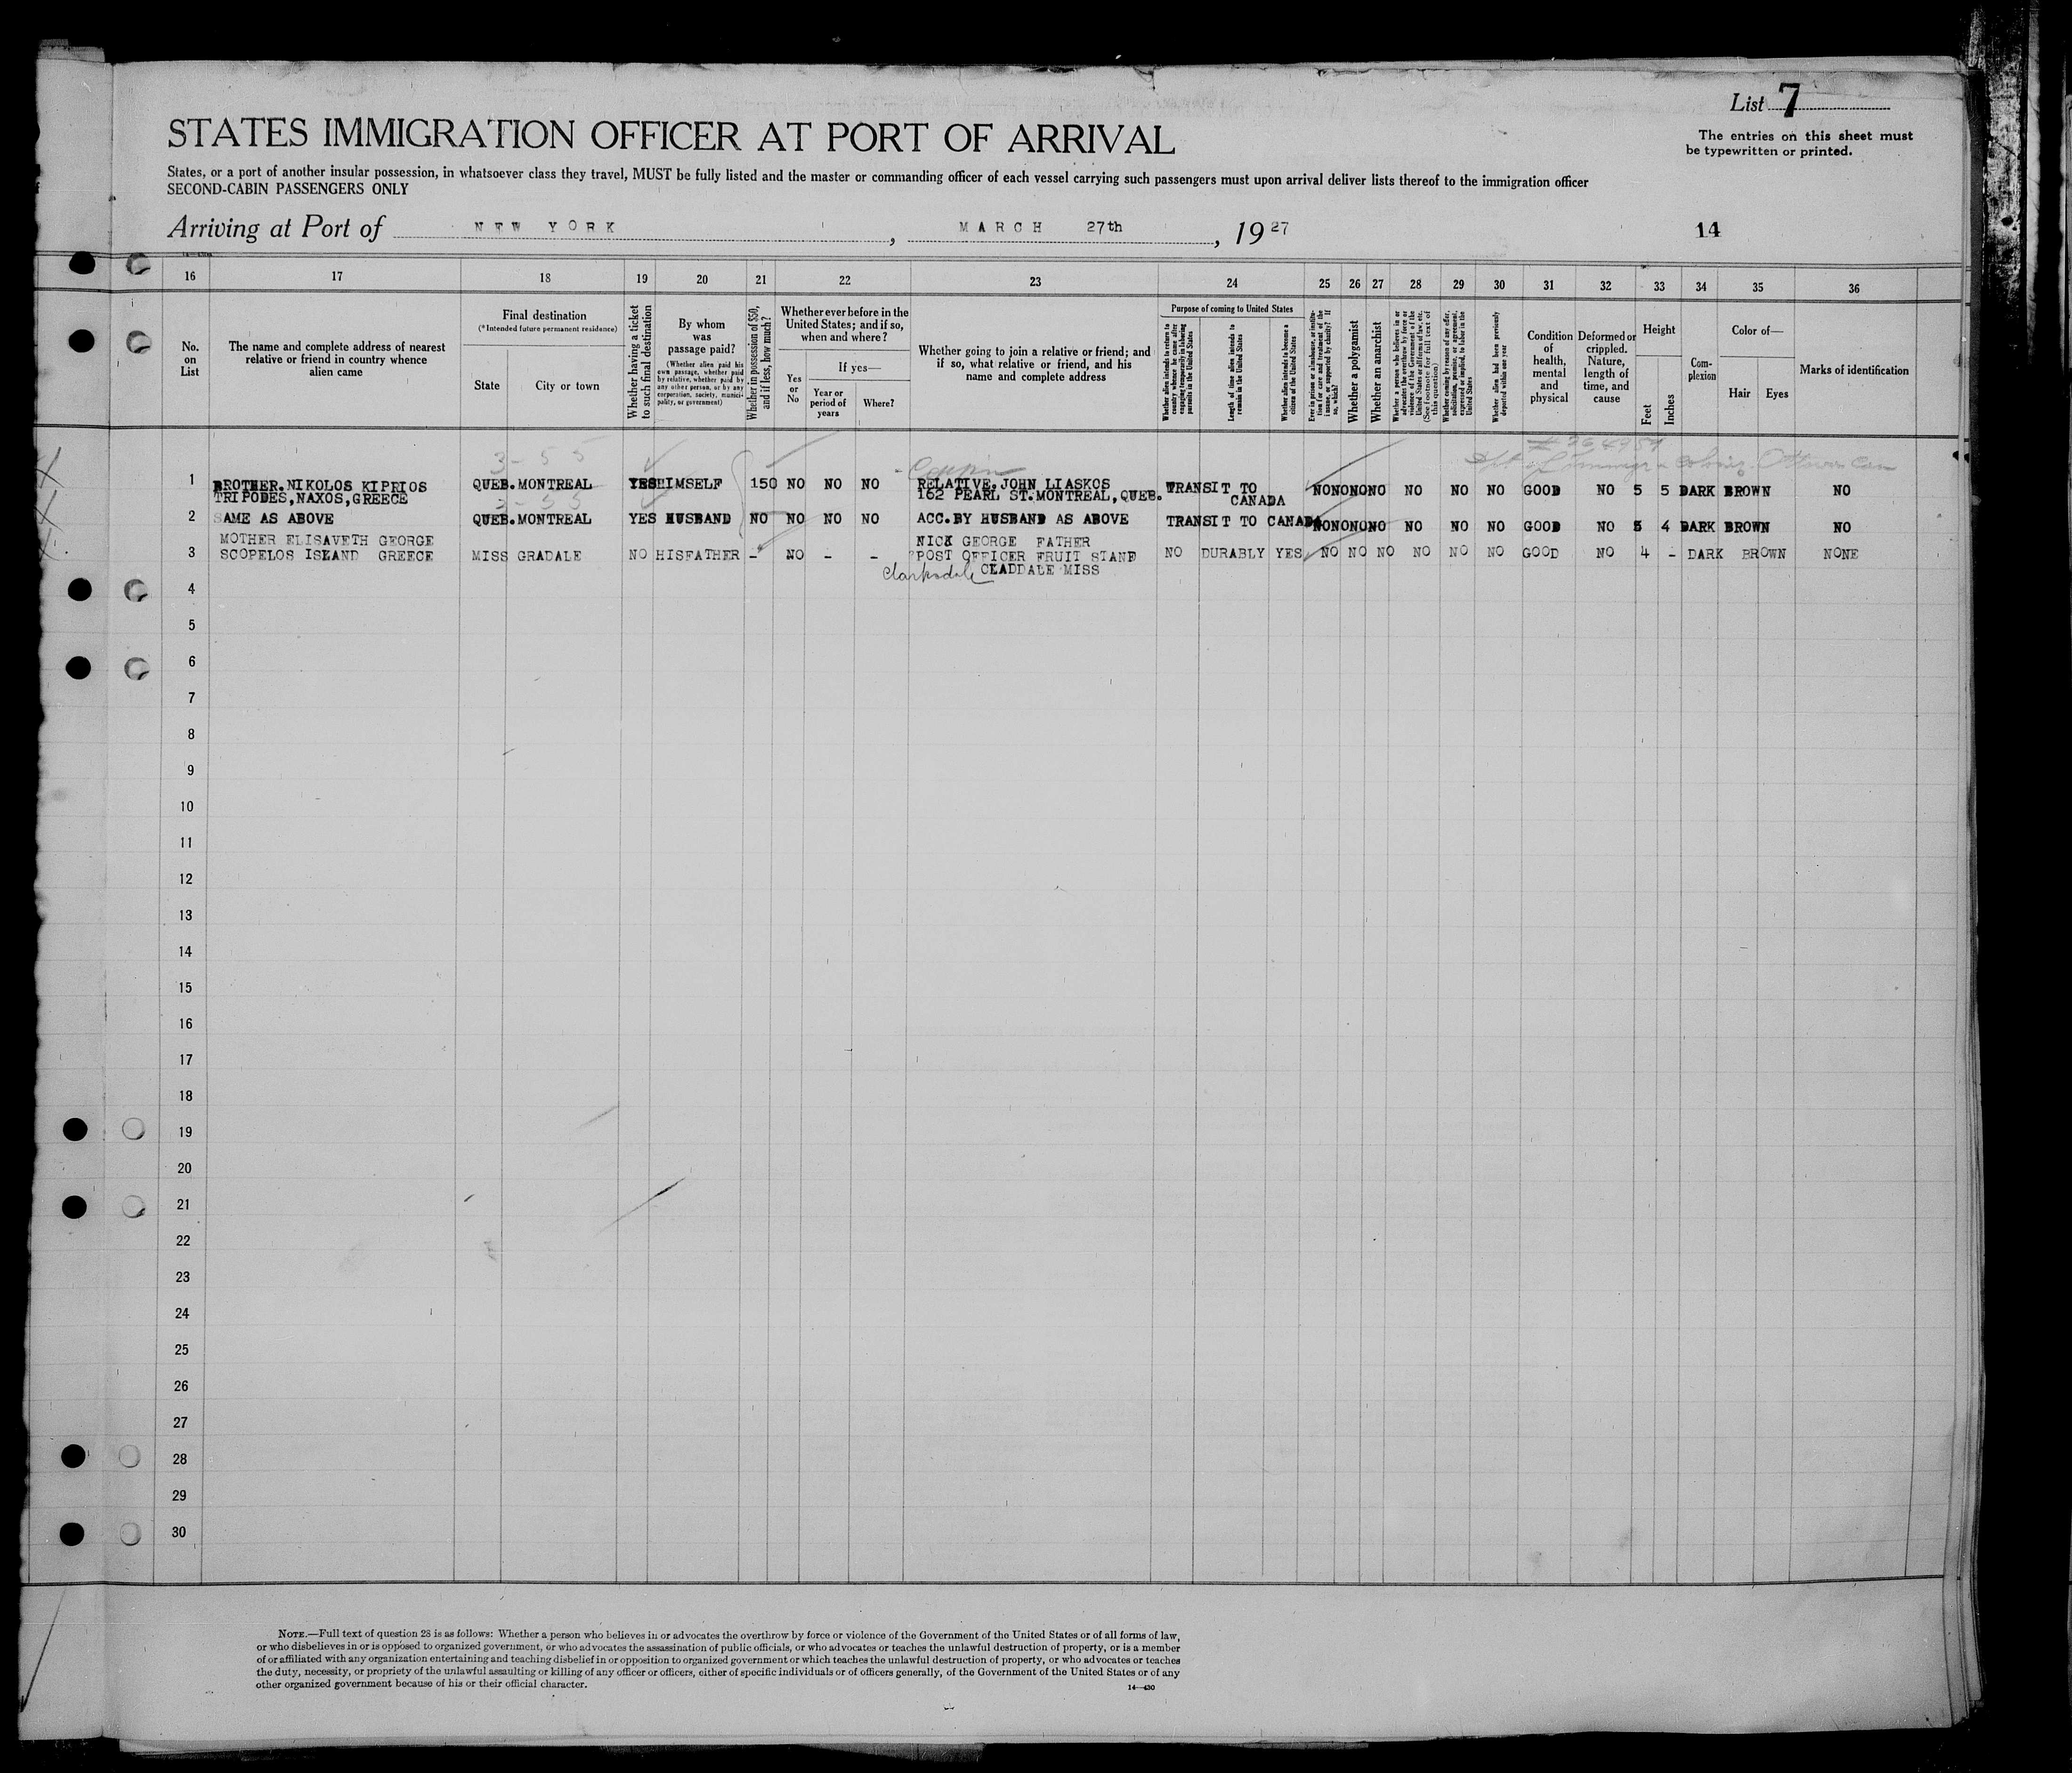 List 7
STATES IMMIGRATION OFFICER AT PORT OF ARRIVAL
The entries on this sheet must
be typewritten or printed.
States, or a port of another insular possession, in whatsoever class they travel, MUST be fully listed and the master or commanding officer of each vessel carrying such passengers must upon arrival deliver lists thereof to the immigration officer
SECOND-CABIN PASSENGERS ONLY
Arriving at Port of NEW YORK, MARCH 27th, 1927
14
16 17 18 19 20 21 22 23 24 25 26 27 28 29 30 31 32 33 34 35 36
No. on List
The name and complete address of nearest relative or friend in country whence alien came
Final destination
(*Intended future permanent residence)
State
City or town
Whether having a ticket to such final destination
By whom was passage paid?
(Whether alien paid his own passage, whether paid by relative, whether paid by any other person, or by any corporation, society, municipality, or government)
Whether in possession of $50, and if less, how much?
Whether ever before in the United States; and if so, when and where?
Yes or No
If yes—
Year or period of years
Where?
Whether going to join a relative or friend; and if so, what relative or friend, and his name and complete address
Purpose of coming to United States
Whether alien intends to return to country whence he came after engaging temporarily in laboring pursuits in the United States
Length of time alien intends to remain in the United States
Whether alien intends to become a citizen of the United States
Ever in prison or almshouse, or institution for care and treatment of the insane, or supported by charity? If so, which?
Whether a polygamist
Whether an anarchist
Whether a person who believes in or advocates the overthrow by force or violence of the Government of the United States or all forms of law, etc. (See footnote for full text of this question)
Whether coming by reason of any offer, solicitation, promise, or agreement, expressed or implied, to labor in the United States
Whether alien had been previously deported within one year
Condition of health, mental and physical
Deformed or crippled. Nature, length of time, and cause
Height
Feet
Inches
Complexion
Color of—
Hair
Eyes
Marks of identification
3-55
1 BROTHER.NIKOLOS KIPRIOS QUEB.MONTREAL YES HIMSELF 150 NO NO NO RELATIVE.JOHN LIASKOS TRANSIT TO NO NO NO NO NO NO GOOD NO 5 5 DARK BROWN NO
TRIPODES,NAXOS,GREECE 162 PEARL ST.MONTREAL,QUEB. CANADA
3-55
2 SAME AS ABOVE QUEB.MONTREAL YES HUSBAND NO NO NO NO ACC.BY HUSBAND AS ABOVE TRANSIT TO CANADA NO NO NO NO NO NO GOOD NO 5 4 DARK BROWN NO
MOTHER ELISAVETH GEORGE NICK GEORGE FATHER
3 SCOPELOS ISLAND GREECE MISS GRADALE NO HISFATHER - NO - - POST OFFICER FRUIT STAND NO DURABLY YES NO NO NO NO NO NO GOOD NO 4 - DARK BROWN NONE
Clarksdale CLADDALE MISS
4
5
6
7
8
9
10
11
12
13
14
15
16
17
18
19
20
21
22
23
24
25
26
27
28
29
30
NOTE.—Full text of question 28 is as follows: Whether a person who believes in or advocates the overthrow by force or violence of the Government of the United States or of all forms of law,
or who disbelieves in or is opposed to organized government, or who advocates the assassination of public officials, or who advocates or teaches the unlawful destruction of property, or is a member
of or affiliated with any organization entertaining and teaching disbelief in or opposition to organized government or which teaches the unlawful destruction of property, or who advocates or teaches
the duty, necessity, or propriety of the unlawful assaulting or killing of any officer or officers, either of specific individuals or of officers generally, of the Government of the United States or of any
other organized government because of his or their official character.
14—430